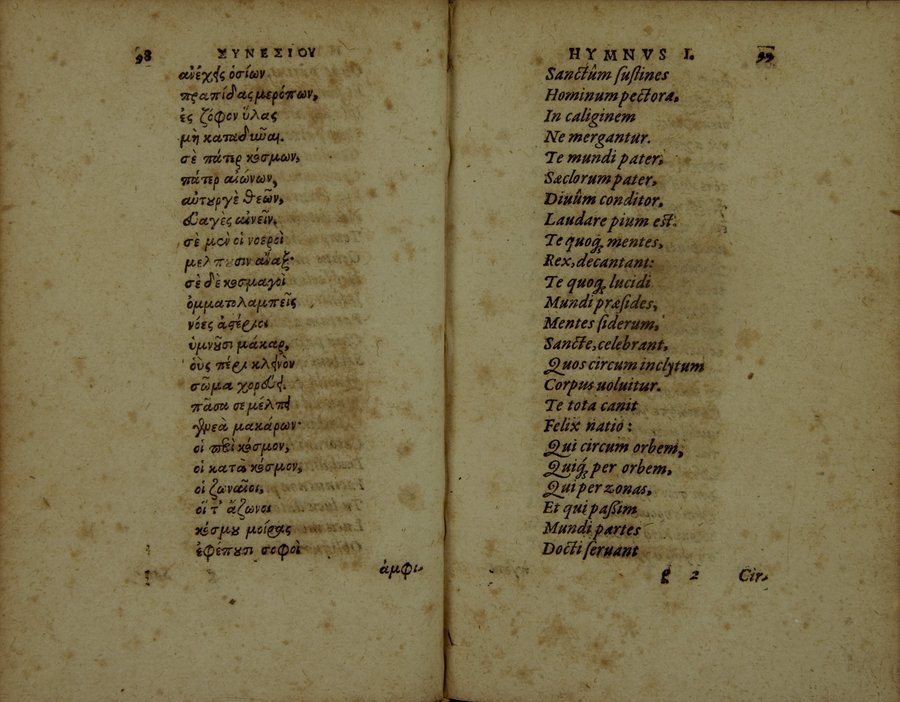 98 ΣΥΝΕΣΙΟΥ
ἀνέχῃς ὁσίων
πραπίδας μερόπων,
ἐς ζόφον ὕλας
μὴ καταδῦναι.
σὲ πάτερ κόσμων,
πάτερ αἰώνων,
αὐτουργὲ θεῶν,
εὐαγὲς αἰνεῖν.
σὲ μὲν οἱ νοεροὶ
μέλπουσιν ἄναξ·
σὲ δὲ κοσμαγοὶ
ὀμματολαμπεῖς
νόες ἀστέριοι
ὑμνοῦσι μάκαρ,
οὓς πέρι κλεινὸν
σῶμα χορεύει.
πᾶσα σε μέλπει
γενεὰ μακάρων·
οἱ περὶ κόσμον,
οἱ κατὰ κόσμον,
οἱ ζωναῖοι,
οἵ τ' ἄζωνοι
κόσμου μοίρας
ἐφέπουσι σοφοὶ
ἀμφι-
HYMNVS I. 99
Sanctûm sustines
Hominum pectora.
In caliginem
Ne mergantur.
Te mundi pater,
Sæclorum pater,
Diuûm conditor,
Laudare pium est.
Te quoq; mentes,
Rex, decantant:
Te quoq; lucidi
Mundi præsides,
Mentes siderum,
Sancte, celebrant,
Quos circum inclytum
Corpus uoluitur.
Te tota canit
Felix natio:
Qui circum orbem,
Quiq; per orbem,
Qui per zonas,
Et qui passim
Mundi partes
Docti seruant
g 2 Cir-